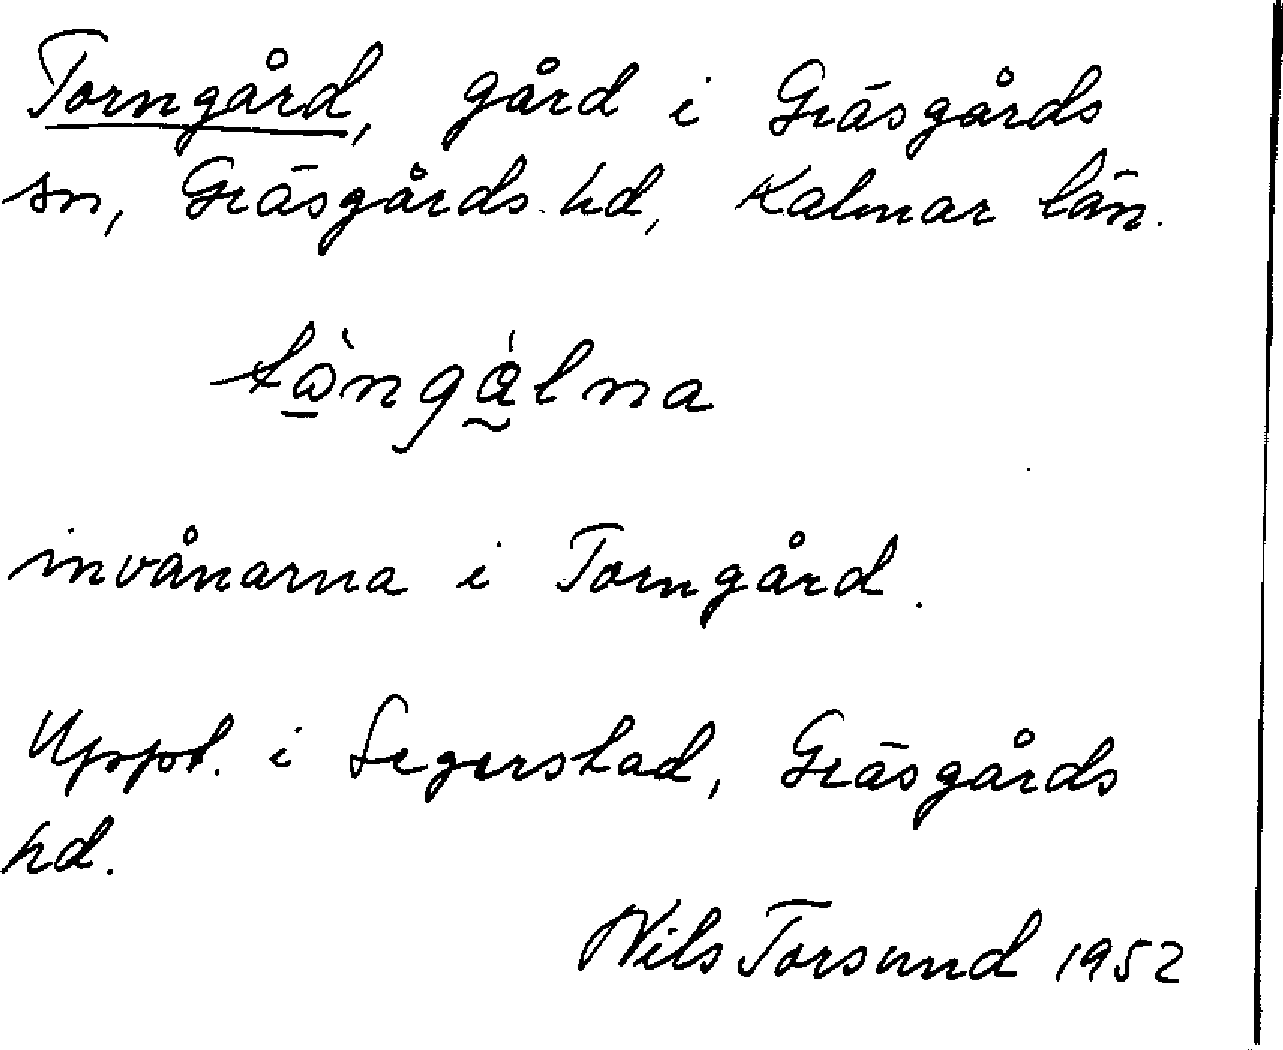 Torngård, gård i Gräsgårds
sn, Gräsgårds hd, Kalmar län.
tὼ̲ngá̰lna
invånarna i Torngård.
Uppt. i Segerstad, Gräsgårds
hd.
Nils Torsund 1952